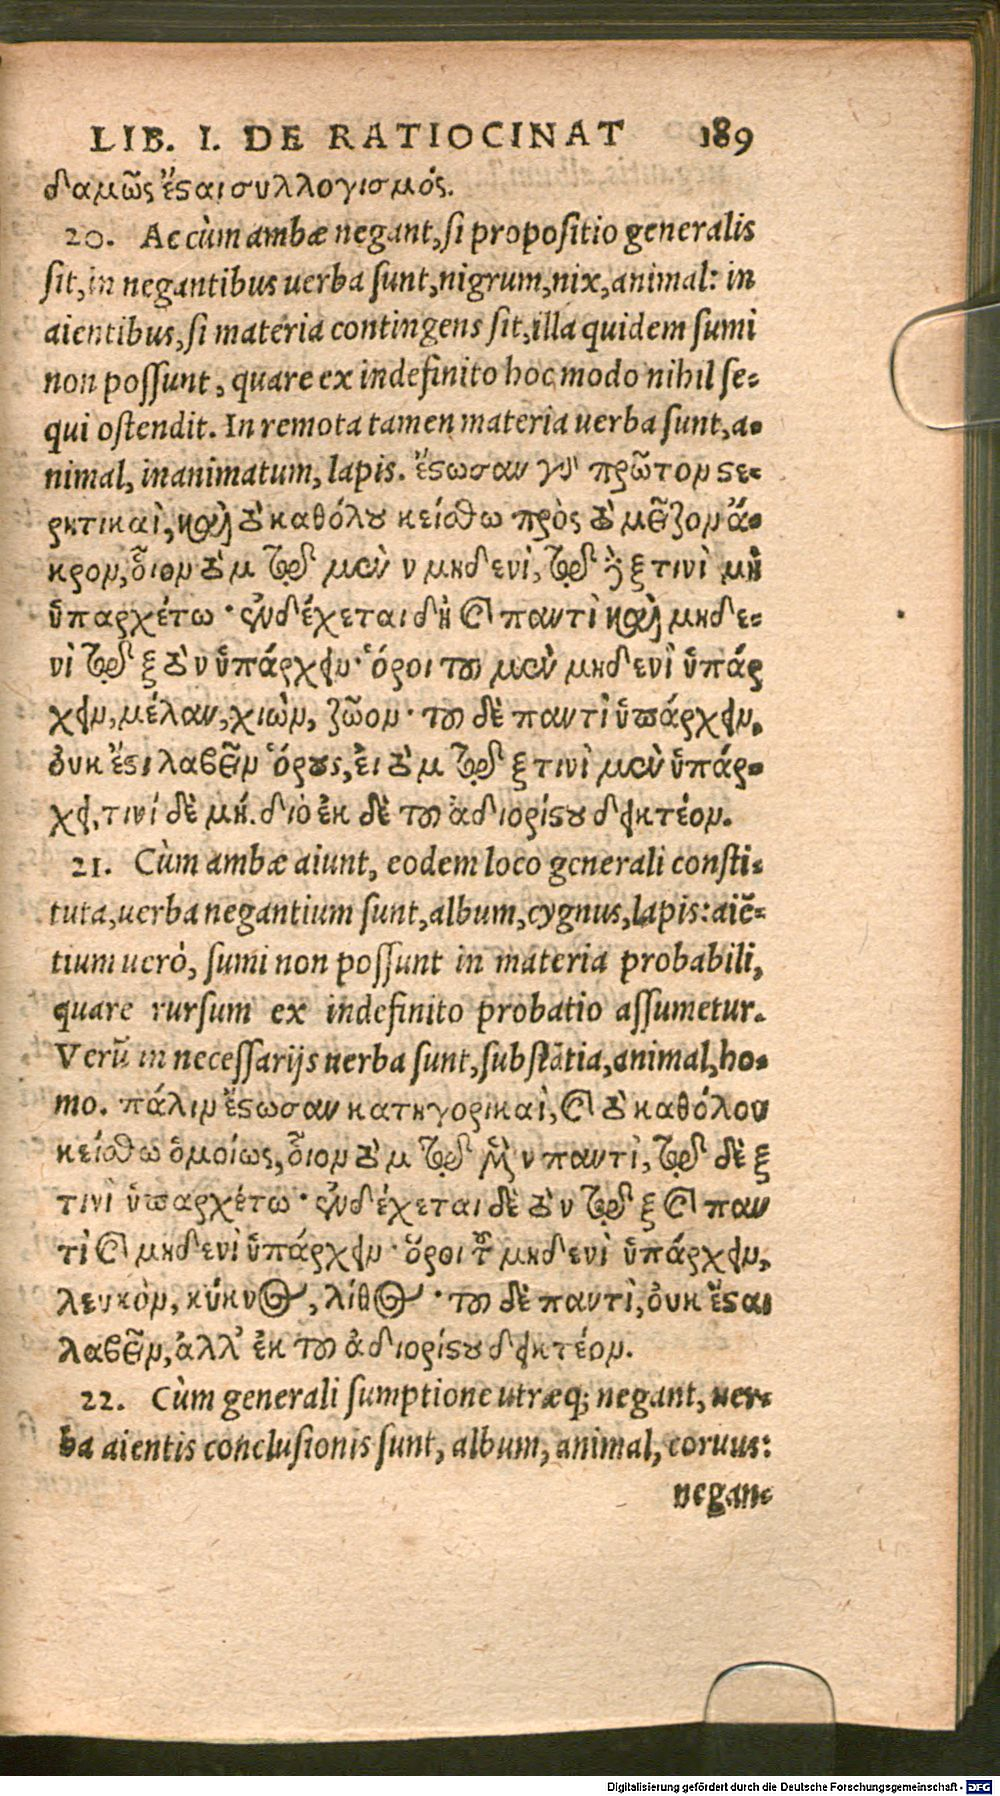 LIB. I. DE RATIOCINAT 189
δαμῶς ἔςαι συλλογισμός.
20. Ac cùm ambæ negant, si propositio generalis
sit, in negantibus uerba sunt, nigrum, nix, animal: in
aientibus, si materia contingens sit, illa quidem sumi
non possunt, quare ex indefinito hoc modo nihil se-
qui ostendit. In remota tamen materia uerba sunt, a-
nimal, inanimatum, lapis. ἔςωσαν γὸ πρῶτον ςε-
ρητικαὶ, καὶ τὸ καθόλου κείσθω πρὸς τὸ μεῖζον ἄ-
κρον, οἷον τὸ μ τῷ μὲν ν μηδενὶ, τῷ δὲ ξ τινὶ μὴ
ὑπαρχέτω · ἐνδέχεται δὴ καὶ παντὶ καὶ μηδε-
νὶ τῷ ξ τὸ ν ὑπάρχειν · ὅροι τοῦ μὲν μηδενὶ ὑπάρ
χειν, μέλαν, χιὼν, ζῶον · τοῦ δὲ παντὶ ὑπάρχειν,
ὀυκ ἔςι λαβεῖν ὅρους, ἐι τὸ μ τῷ ξ τινὶ μὲν ὑπάρ-
χει, τινί δὲ μή. διὸ ἐκ δὲ τοῦ ἀδιορίςου δεικτέον.
21. Cùm ambæ aiunt, eodem loco generali consti-
tuta, uerba negantium sunt, album, cygnus, lapis: aiẽ-
tium uerò, sumi non possunt in materia probabili,
quare rursum ex indefinito probatio assumetur.
Verũ in necessarijs uerba sunt, substãtia, animal, ho-
mo. πάλιν ἔςωσαν κατηγορικαὶ, καὶ τὸ καθόλου
κείσθω ὁμοίως, οἷον τὸ μ τῷ μὲν ν παντὶ, τῷ δὲ ξ
τινὶ ὑπαρχέτω · ἐνδέχεται δὲ τὸ ν τῷ ξ καὶ παν
τὶ καὶ μηδενὶ ὑπάρχειν · ὅροι τοῦ μηδενὶ ὑπάρχειν,
λευκὸν, κύκνος, λίθος · τοῦ δὲ παντὶ, ὀυκ ἔςαι
λαβεῖν, ἀλλ' ἐκ τοῦ ἀδιορίςου δεικτέον.
22. Cùm generali sumptione utræq; negant, uer-
ba aientis conclusionis sunt, album, animal, coruus:
negan-
Digitalisierung gefördert durch die Deutsche Forschungsgemeinschaft - DFG